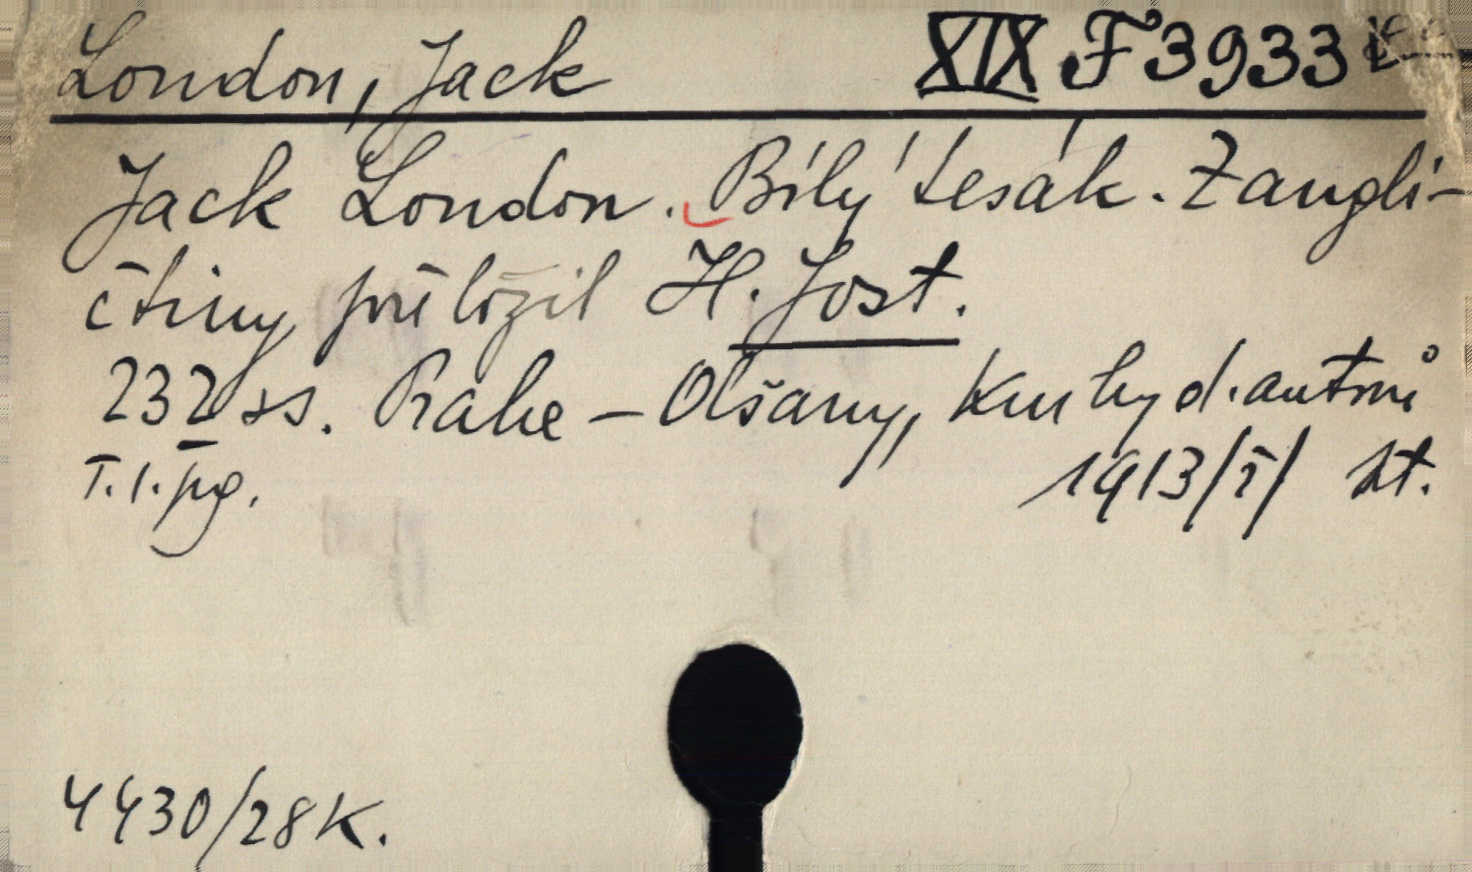 London, Jack XIX F 3933
Jack London. Bílý tesák. Z angli-
čtiny přeložil H. Jost.
232 ss. Praha – Olšany, Knihy d. autorů
T. 1. pg. 1913/I/ 2t.
4430/28 K.